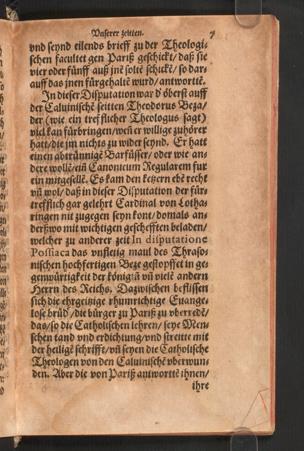 Vnserer zeitten. 7
vnd seynd eilends brieff zu der Theologi-
schen facultet gen Pariß geschickt/ daß sie
vier oder fünff auß jnē solte schickē/ so dar-
auff das jnen fürgehaltē wurd/ antwortē.
In dieser Disputation war d' oberst auff
der Caluinischē seitten Theodorus Beza/
der (wie ein trefflicher Theologus sagt)
viel kan fürbringen/ weñ er willige zuhörer
hatt/ die jm nichts zu wider seynd. Er hatt
einen abtrünnigē Barfüsser/ oder wie an-
dere wollē/ eiñ Canonicum Regularem fur
ein mitgesellē. Es kam den ketzern ebē recht
vñ wol/ daß in dieser Disputation der für-
trefflich gar gelehrt Cardinal von Lotha-
ringen nit zugegen seyn kont/ domals an-
derßwo mit wichtigen gescheften beladen/
welcher zu anderer zeit In disputatione
Posiiaca das vnfletig maul des Thraso-
nischen hochfertigen Beze gestopffet in ge-
genwürtigkeit der königiñ vñ vielē andern
Herrn des Reichs. Dazwischen beflissen
sich die ehrgeitzige rhumrichtige Euange-
lose brüd'/ die bürger zu Pariß zu vberredē/
das/ so die Catholischen lehren/ seye Men-
schen tand vnd erdichtung/ vnd streitte mit
der heiligē schrifft/ vñ seyen die Catholische
Theologen von den Caluinischē vberwun-
den. Aber die von Pariß antwortē ihnen/
ihre